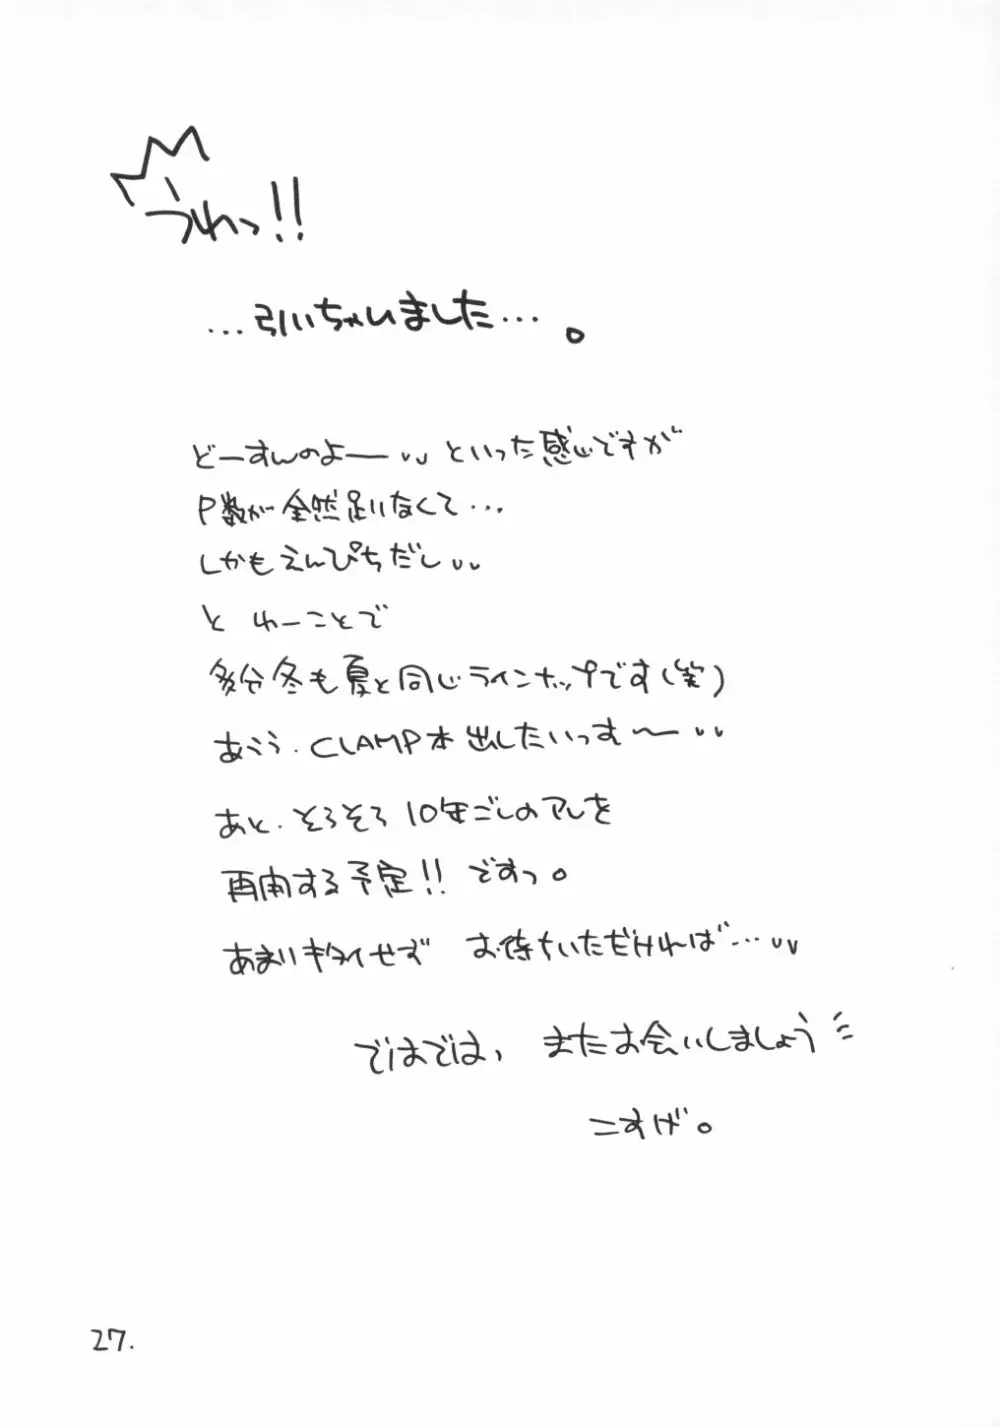 うわっ!!
…引いちゃいました…。
どーすんのよーといった感じですが
P数が全然足りなくて…
しかもえんぴちだし
と ゆーことで
多分冬も夏と同じラインナップです(笑)
あうう.CLAMP本出したいっす〜
あと.そろそろ10年ごしのアレを
再開する予定!!ですっ。
あまりキタイせず お待ちいただければ…
ではでは、またお会いしましょう
こすげ。
27.